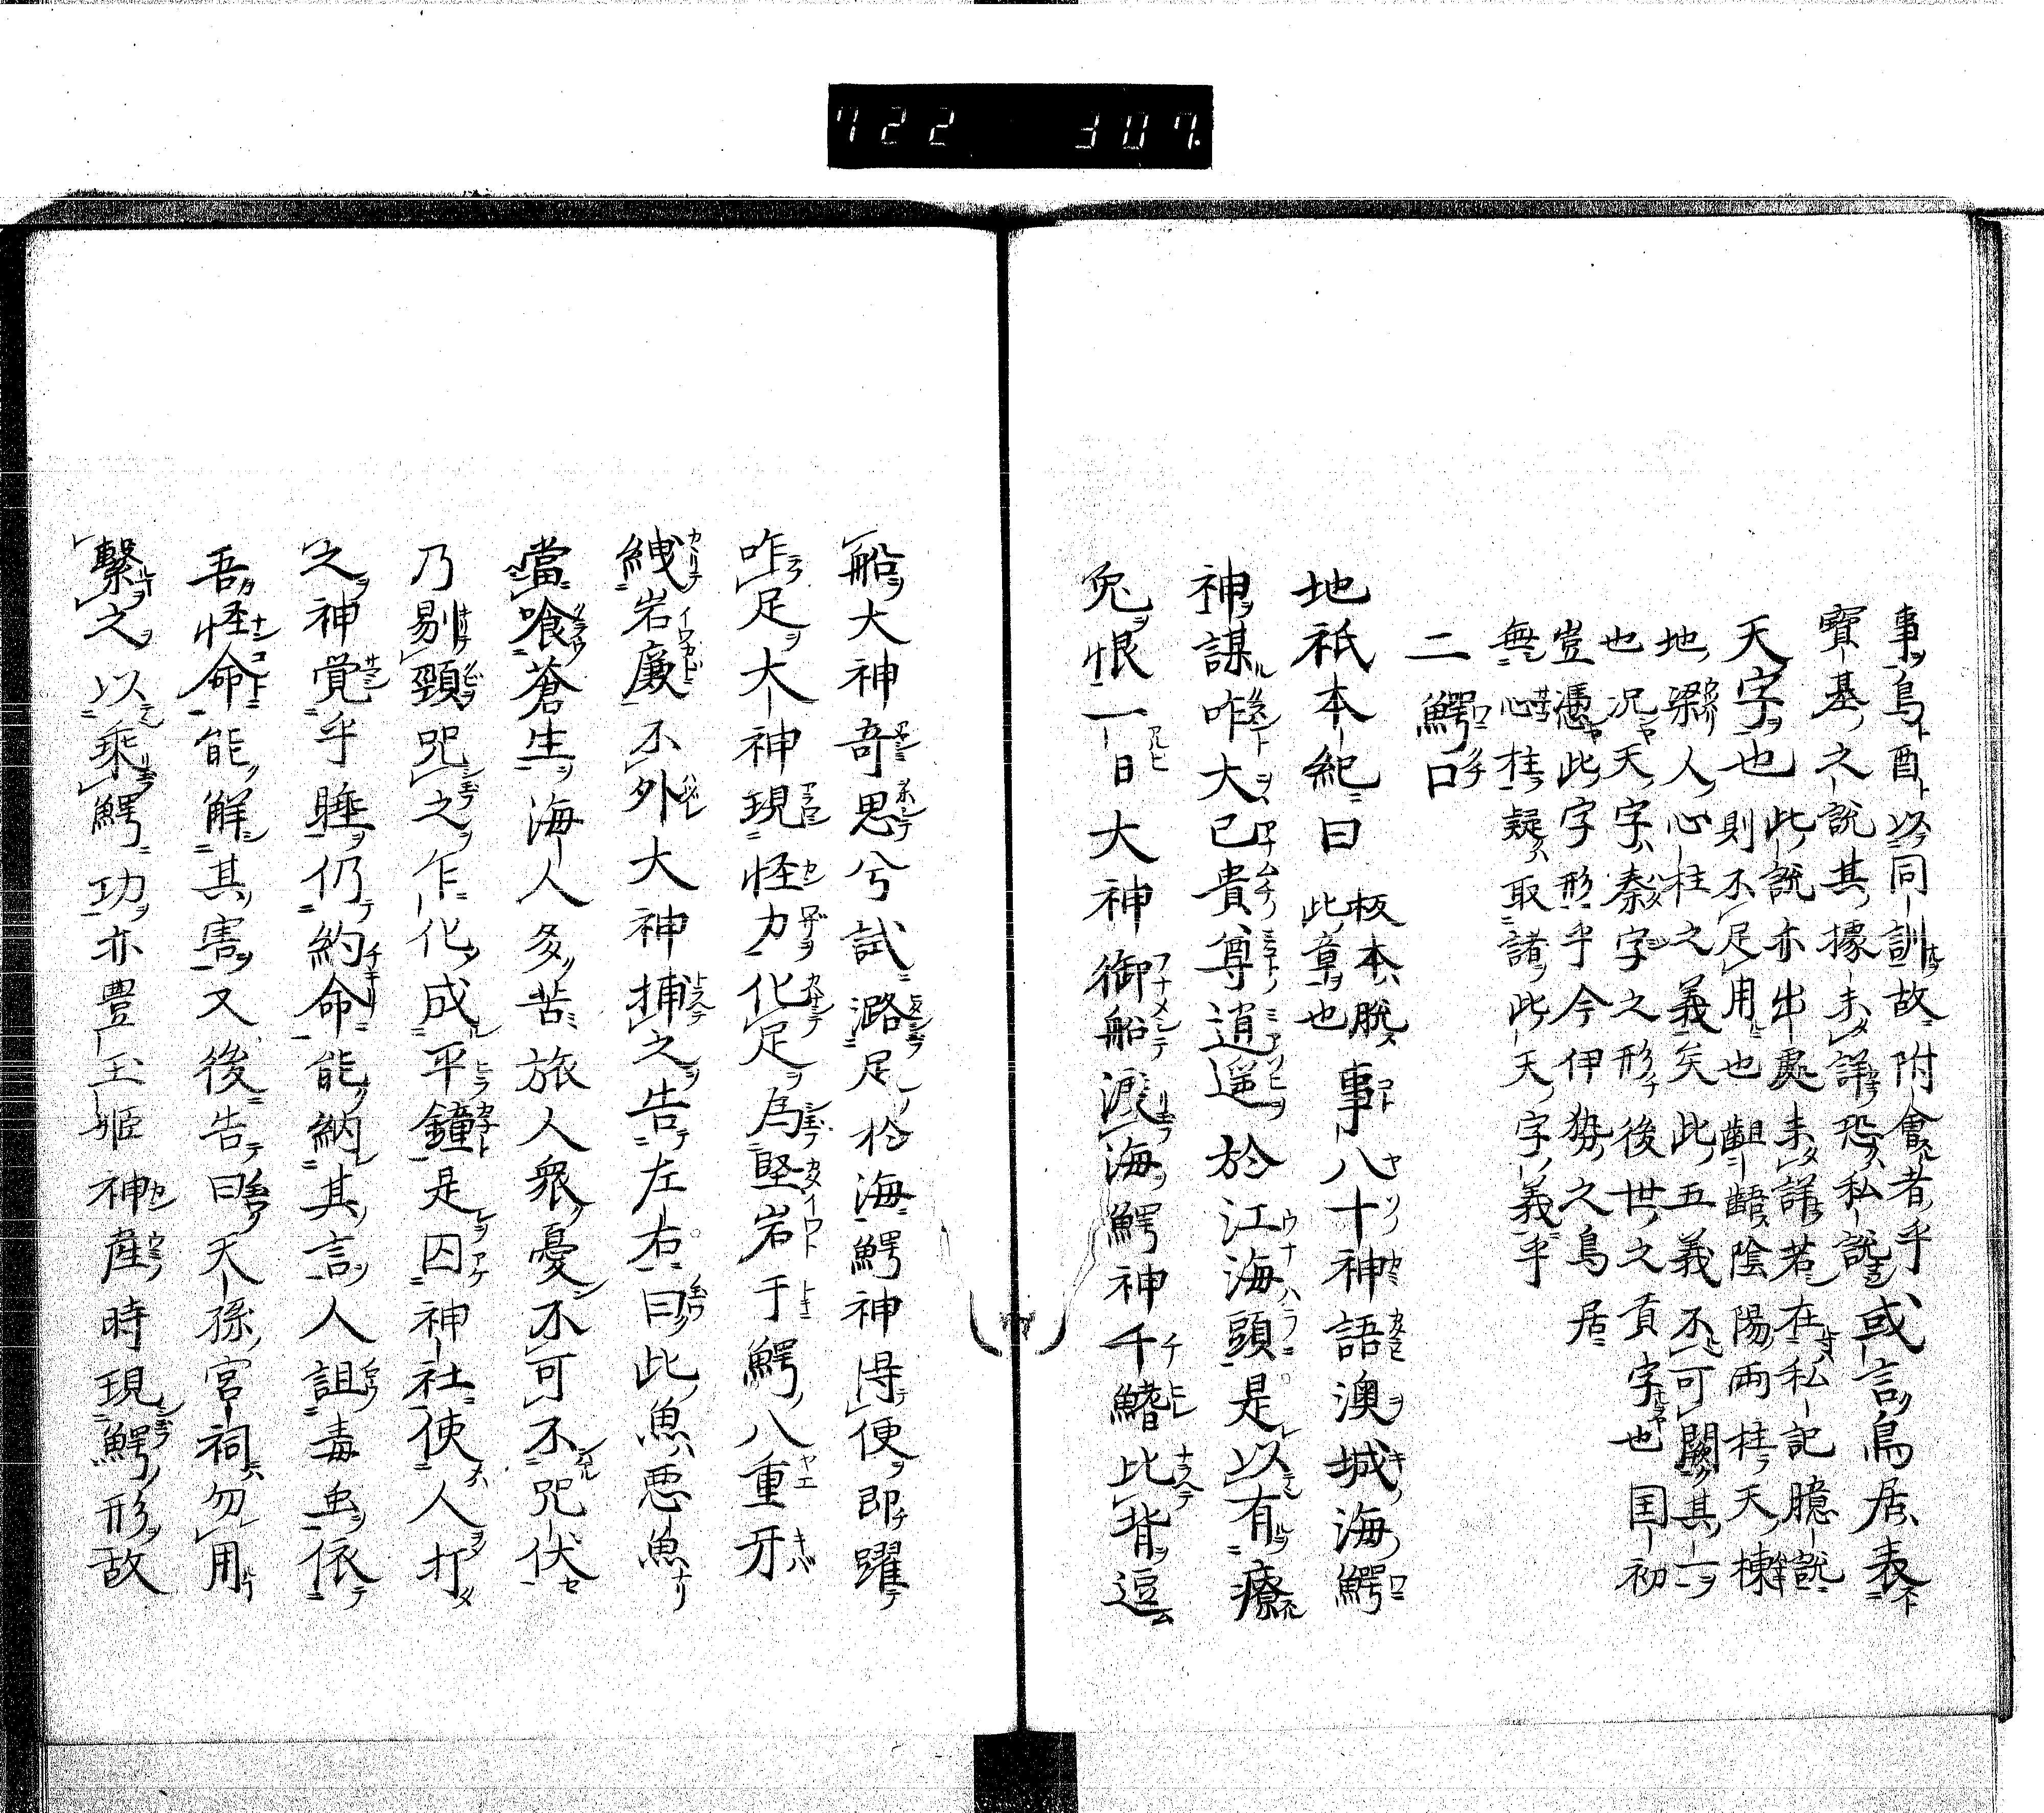 722 307.
事鳥酉以同訓故附會者乎
寶基之說其據未詳恐私說或言鳥居表
天字也此說亦出處未詳若在私記臆說
則不足用也齟齬陰陽兩柱天棟
地梁人心柱之義矣此五義不可闕其一
也況天字秦字之形後世之貢字也国初
豈憑此字形乎今伊勢之鳥居
無心柱疑取諸此天字義乎
二鰐口
地祇本紀曰板本脫此章也事八十神語澳城海鰐
神謀咋大已貴尊逍遥於江海頭是以有療
兔恨一日大神御船渡海鰐神千鰭比背逗
船大神奇思兮試潞足於海鰐神得便即躍
咋足大神現怪力化足為堅岩于鰐八重牙
絏岩廉不外大神捕之告左右曰此魚悪魚
當喰蒼生海人多苦旅人衆憂不可不咒伏
乃剔頸咒之乍化成平鐘是囚神社使人打
之神覚乎睡仍約命能納其言人詛毒虫依
吾怪命能解其害又後告曰天孫宮祠勿用
繫之以乘鰐功亦豊玉姫神産時現鰐形故